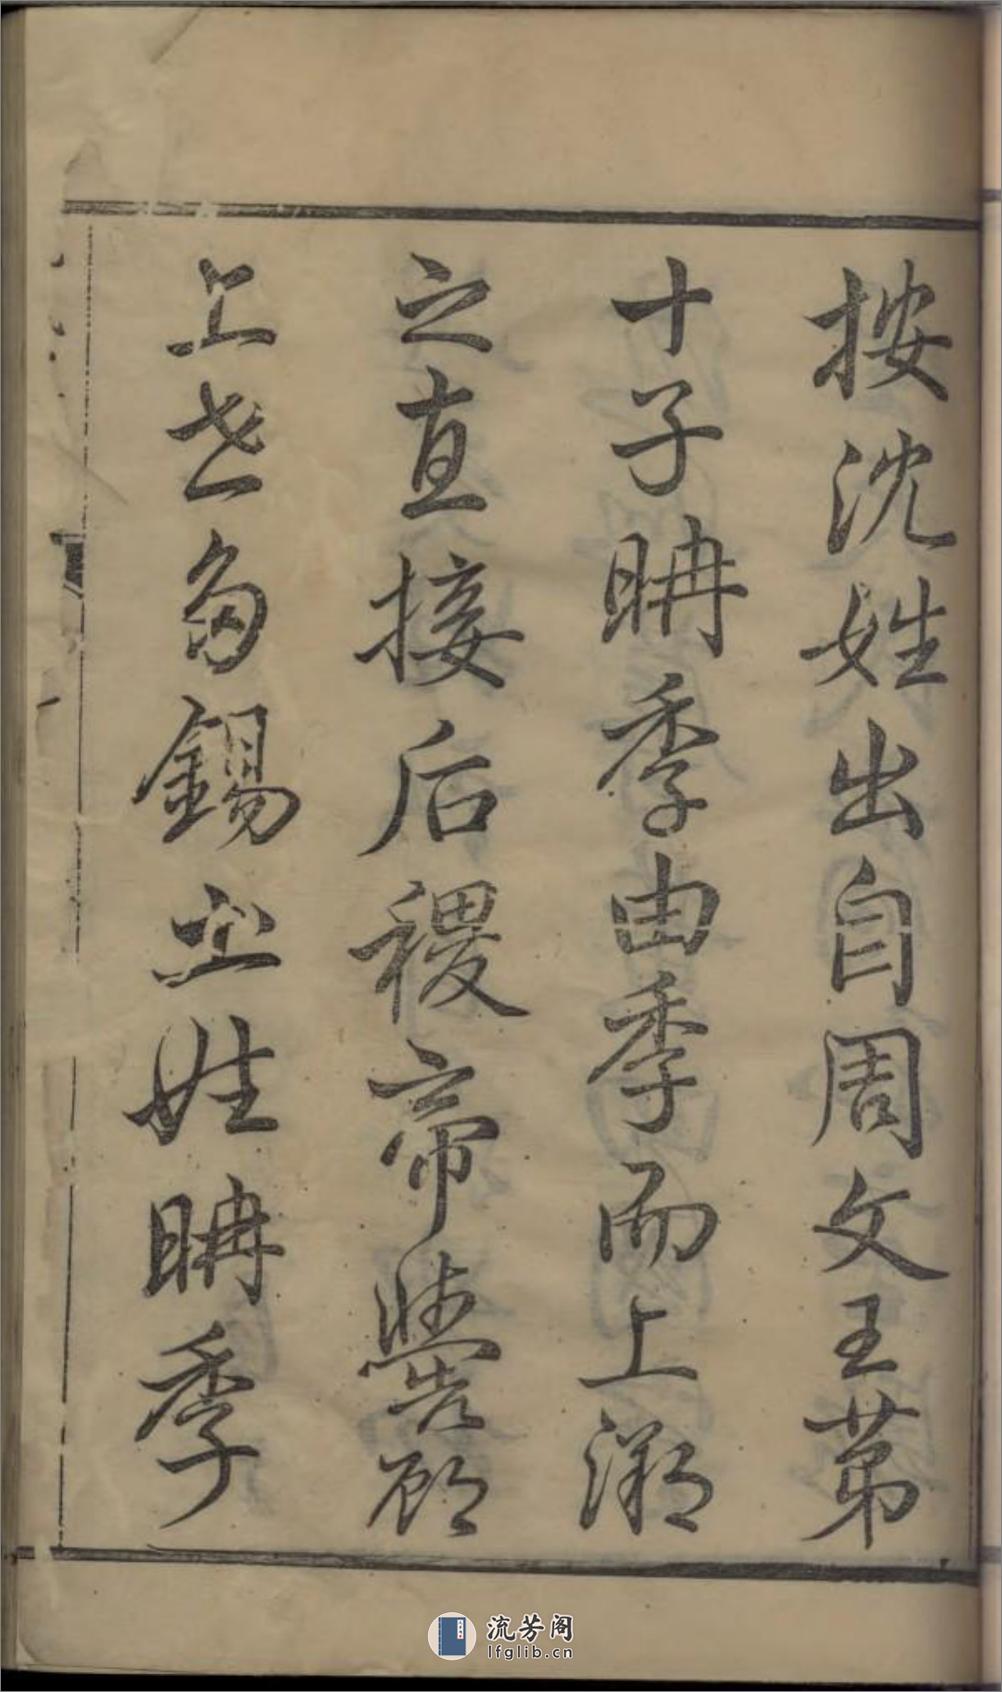 按沈姓出自周文王苐
十子聃季由季而上溯
之直接后稷帝嚳顧
上世多錫土姓聃季
流芳阁
lfglib.cn